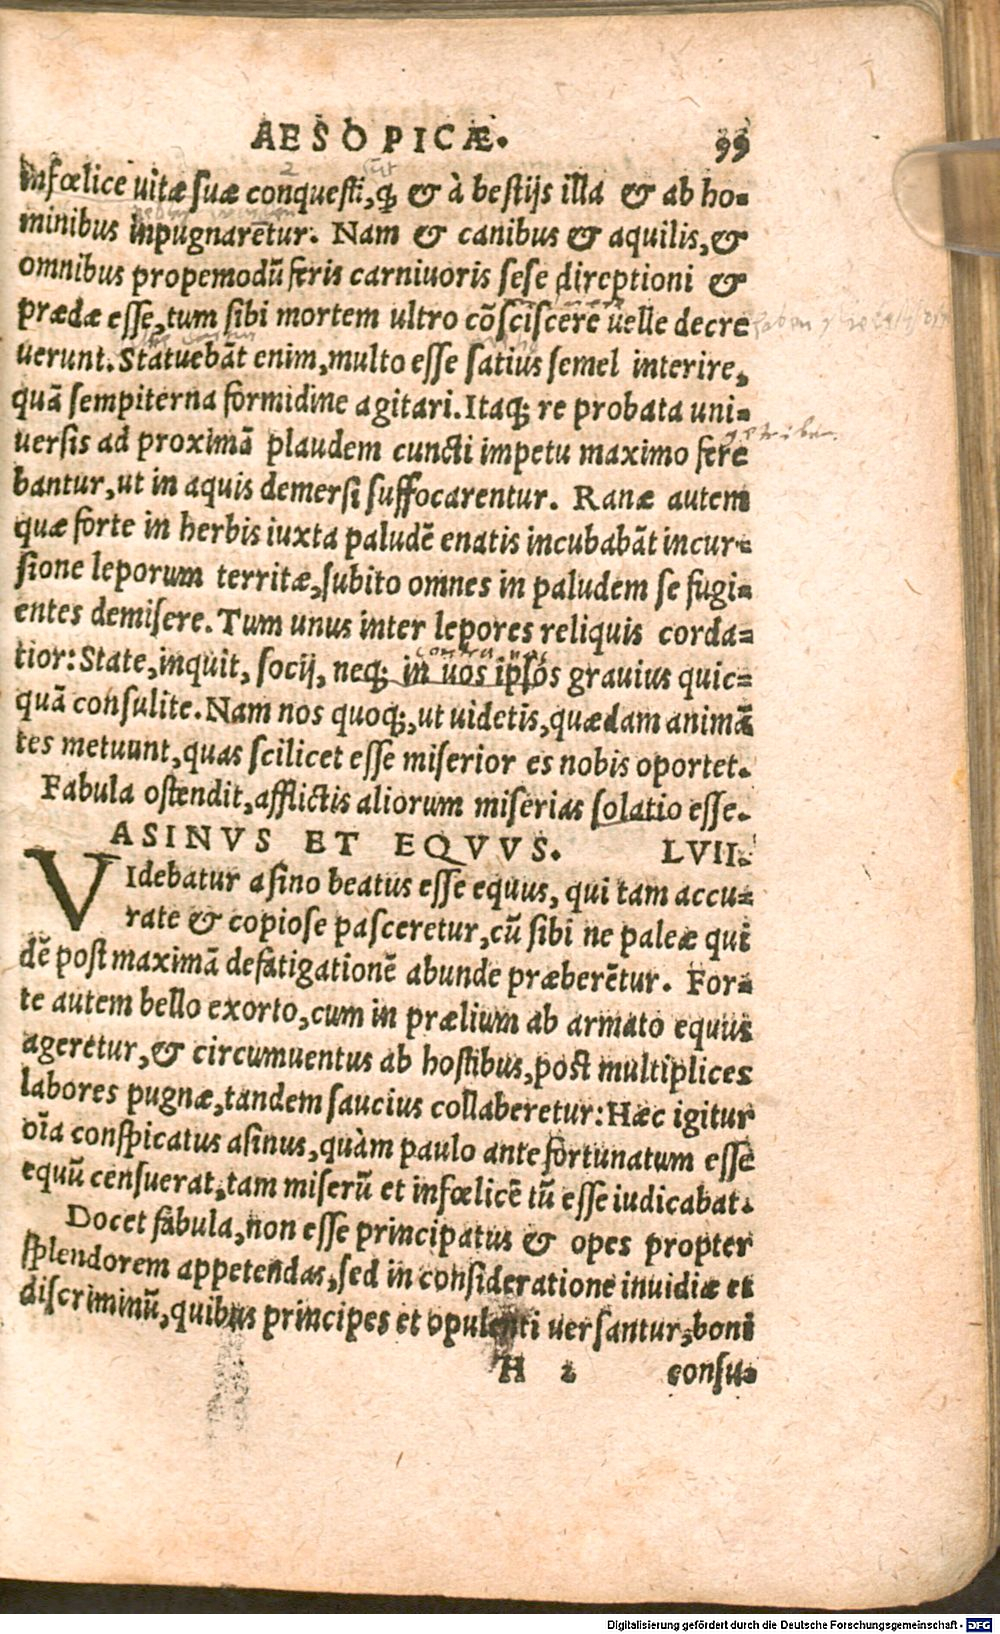 AESOPICÆ. 99
infœlice uitæ suæ conquesti, ꝙ & à bestijs illa & ab ho-
minibus inpugnarētur. Nam & canibus & aquilis, &
omnibus propemodū feris carniuoris sese direptioni &
prædæ esse, tum sibi mortem ultro cōsciscere uelle decre
uerunt. Statuebāt enim, multo esse satius semel interire,
quā sempiterna formidine agitari. Itaq; re probata uni-
uersis ad proximā plaudem cuncti impetu maximo fere
bantur, ut in aquis demersi suffocarentur. Ranæ autem
quæ forte in herbis iuxta paludē enatis incubabāt incur-
sione leporum territæ, subito omnes in paludem se fugi-
entes demisere. Tum unus inter lepores reliquis corda-
tior: State, inquit, socij, neq; in uos ipsos grauius quic-
quā consulite. Nam nos quoq;, ut uidetis, quædam animā
tes metuunt, quas scilicet esse miserior es nobis oportet.
Fabula ostendit, afflictis aliorum miserias solatio esse.
ASINVS ET EQVVS. LVII.
VIdebatur asino beatus esse equus, qui tam accu-
rate & copiose pasceretur, cū sibi ne paleæ qui
dē post maximā defatigationē abunde præberētur. For-
te autem bello exorto, cum in prælium ab armato equus
ageretur, & circumuentus ab hostibus, post multiplices
labores pugnæ, tandem saucius collaberetur: Hæc igitur
oīa conspicatus asinus, quàm paulo ante fortunatum esse
equū censuerat, tam miserū et infœlicē tū esse iudicabat.
Docet fabula, non esse principatus & opes propter
splendorem appetendas, sed in consideratione inuidiæ et
discriminū, quibus principes et opulenti uersantur, boni
H 2 consu-
Digitalisierung gefördert durch die Deutsche Forschungsgemeinschaft - DFG